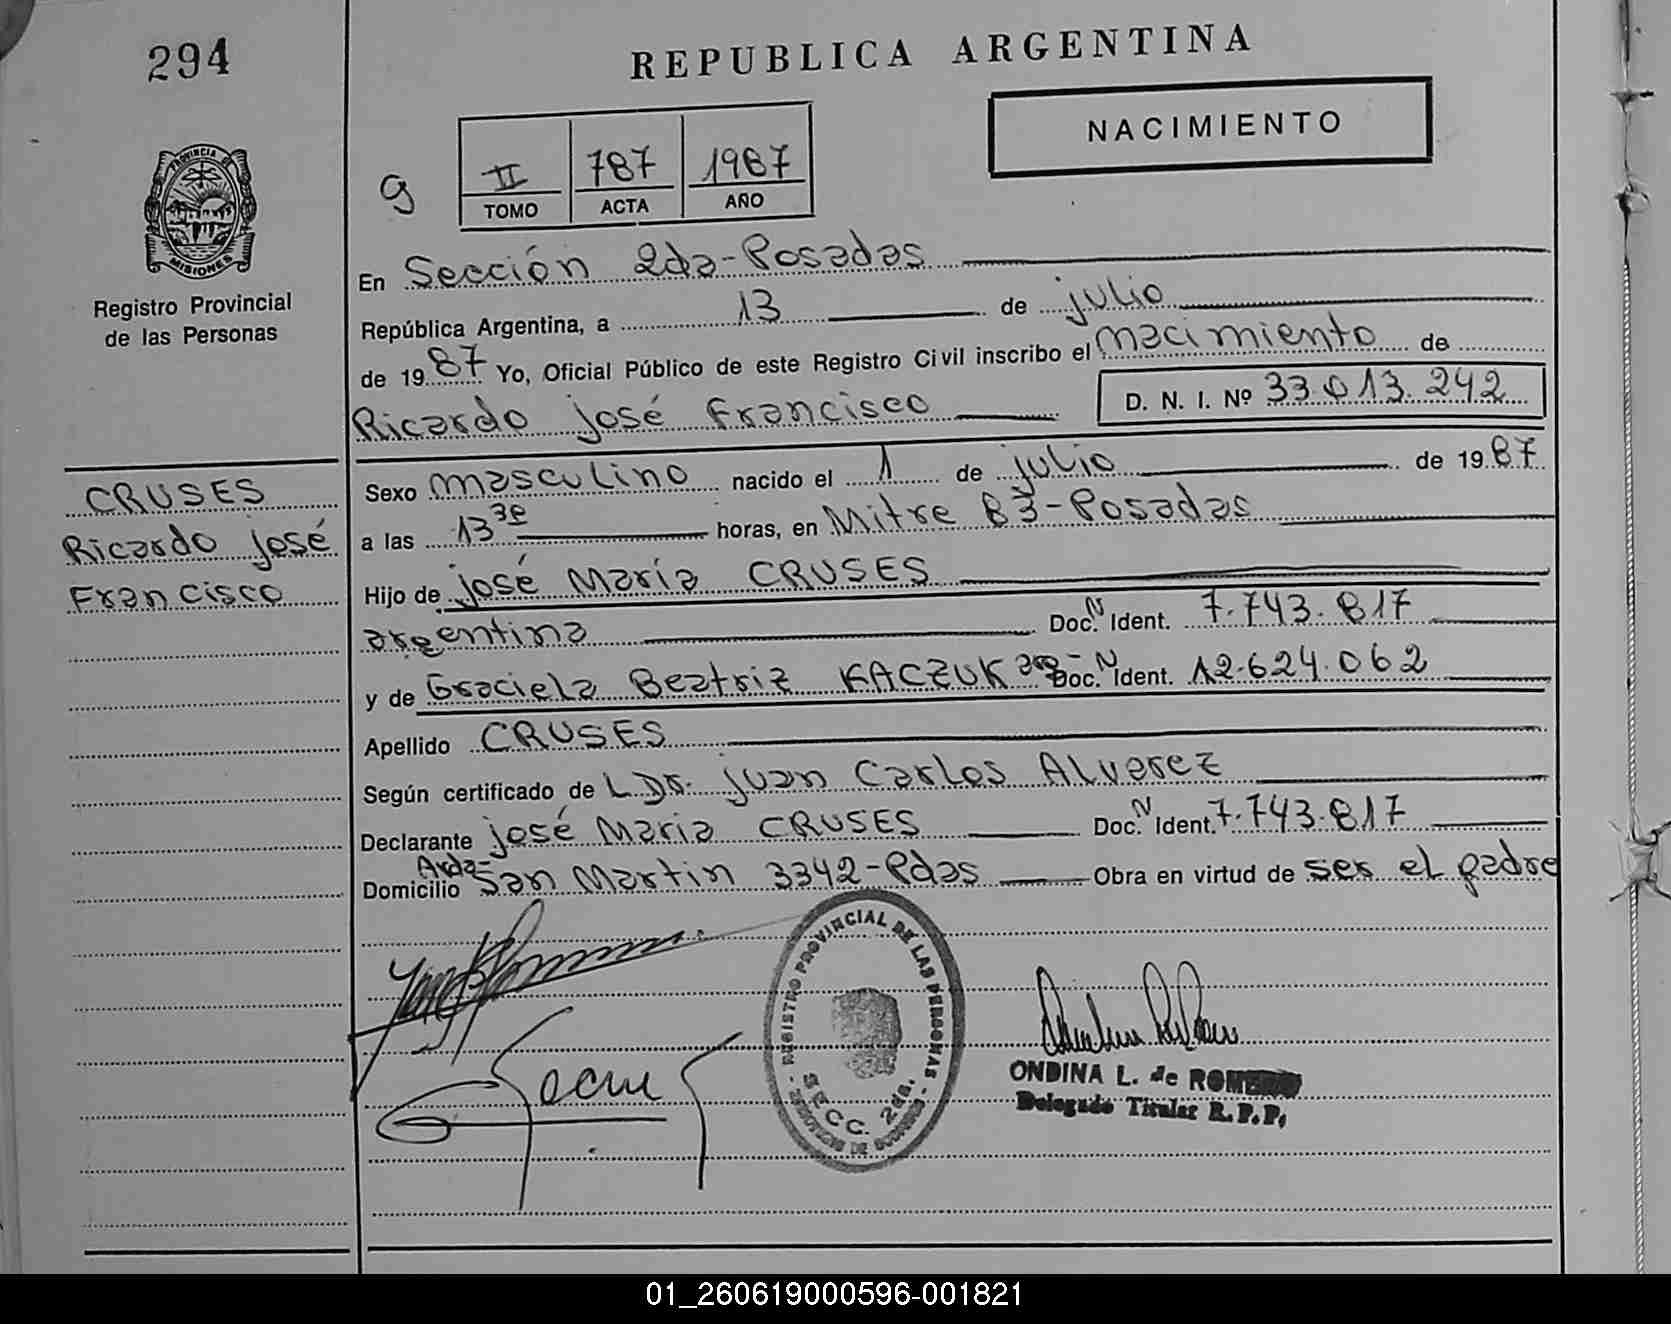 294
REPUBLICA ARGENTINA
NACIMIENTO
g
II 787 1987
TOMO ACTA AÑO
PROVINCIA DE MISIONES
Registro Provincial
de las Personas
En Sección 2da-Posadas
República Argentina, a 13 de julio
de 1987 Yo, Oficial Público de este Registro Civil inscribo el nacimiento de
Ricardo josé Francisco D. N. I. Nº 33.013.242
CRUSES
Ricardo josé
Francisco
Sexo masculino nacido el 1 de julio de 1987
a las 13 30 horas, en Mitre 83-Posadas
Hijo de josé María CRUSES
argentina Doc. N Ident. 7.743.817
y de Graciela Beatriz KACZUK arg- Doc. N Ident. 12.624.062
Apellido CRUSES
Según certificado de L Dr. juan Carlos ALverez
Declarante josé María CRUSES Doc. N Ident. 7.743.817
Domicilio Avda- San Martin 3342-Pdas Obra en virtud de ser el padre
REGISTRO PROVINCIAL DE LAS PERSONAS
SECC. 2da.
ONDINA L. de ROMERO
Delegado Titular R.P.P.
01_260619000596-001821